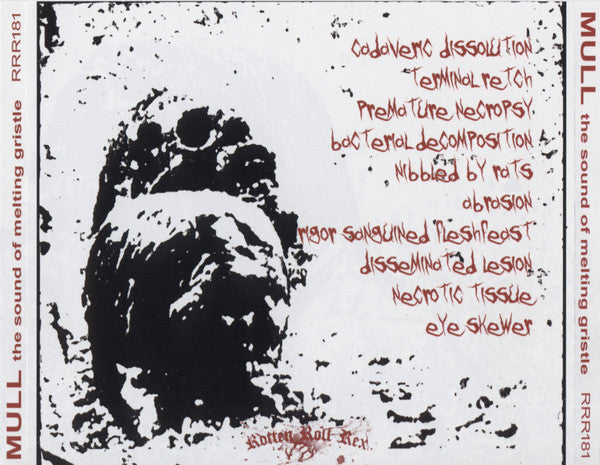 MULL the sound of melting gristle RRR181
cadaveric dissolution
terminal retch
premature necropsy
bacterial decomposition
nibbled by rats
abrasion
rigor sanguined fleshfeast
disseminated lesion
necrotic tissue
eye skewer
Rotten Roll Rex
MULL the sound of melting gristle RRR181